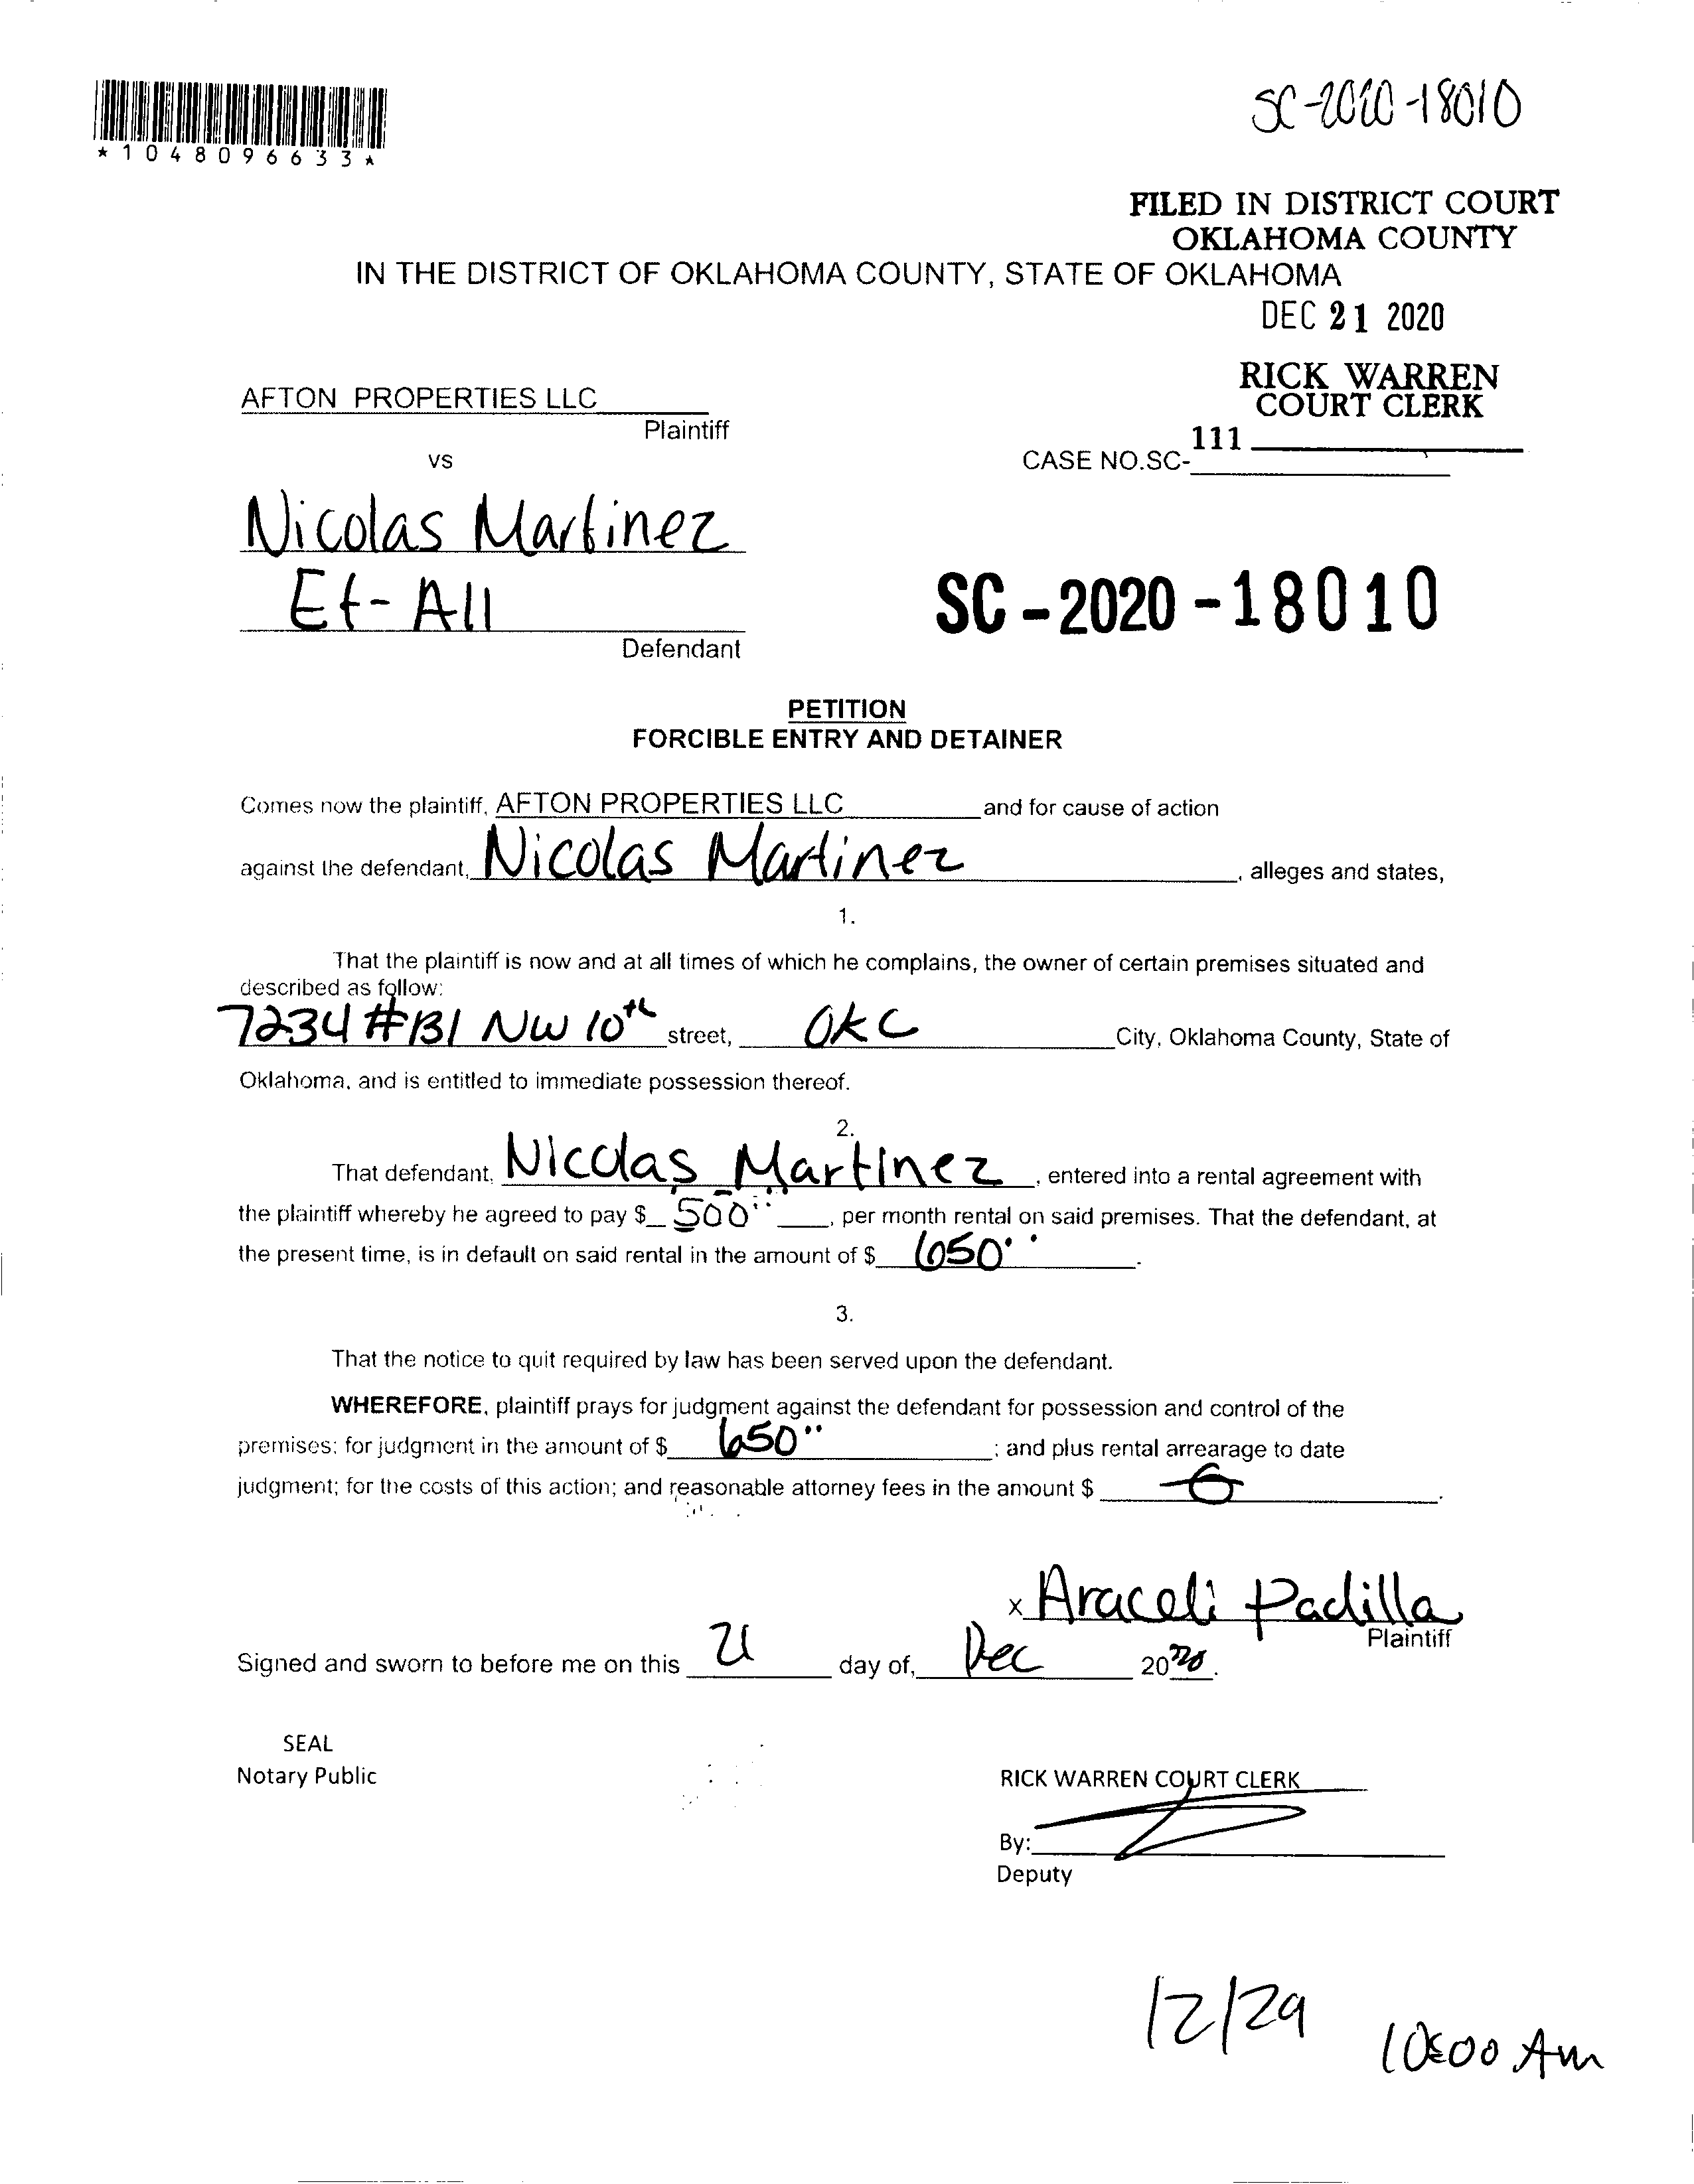 SC-2020-18010
*1048096633*
FILED IN DISTRICT COURT
OKLAHOMA COUNTY
IN THE DISTRICT OF OKLAHOMA COUNTY, STATE OF OKLAHOMA
DEC 21 2020
RICK WARREN
COURT CLERK
AFTON PROPERTIES LLC
Plaintiff
111
vs
CASE NO.SC-
Nicolas Martinez
Et-All
SC-2020-18010
Defendant
PETITION
FORCIBLE ENTRY AND DETAINER
Comes now the plaintiff, AFTON PROPERTIES LLC and for cause of action
against the defendant, Nicolas Martinez, alleges and states,
1.
That the plaintiff is now and at all times of which he complains, the owner of certain premises situated and
described as follow:
7234 #B1 NW 10th street, OKC City, Oklahoma County, State of
Oklahoma, and is entitled to immediate possession thereof.
2.
That defendant, Nicolas Martinez, entered into a rental agreement with
the plaintiff whereby he agreed to pay $ 500.., per month rental on said premises. That the defendant, at
the present time, is in default on said rental in the amount of $ 650...
3.
That the notice to quit required by law has been served upon the defendant.
WHEREFORE, plaintiff prays for judgment against the defendant for possession and control of the
premises; for judgment in the amount of $ 650..; and plus rental arrearage to date
judgment; for the costs of this action; and reasonable attorney fees in the amount $ 0.
x Araceli Padilla
Plaintiff
Signed and sworn to before me on this 21 day of, Dec 2020.
SEAL
Notary Public
RICK WARREN COURT CLERK
By:
Deputy
12/29
10:00 Am